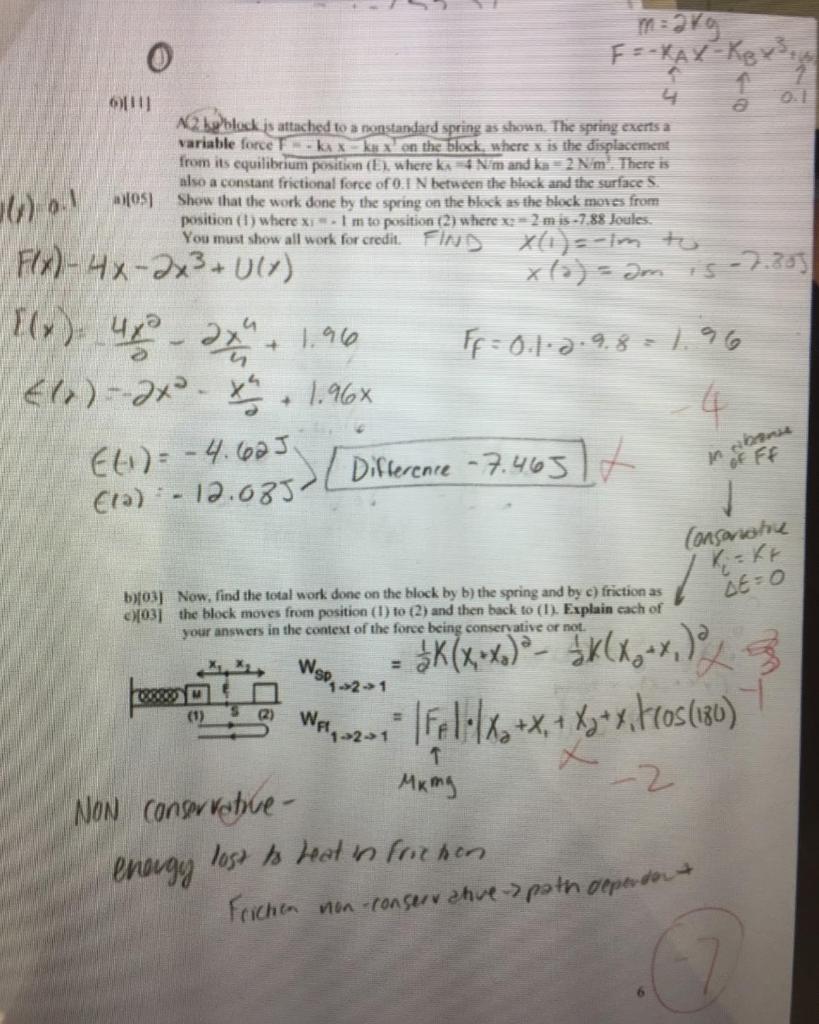 m = 2kg
F = -KAX - KBX³
↑ ↑ ↑
4 2 0.1
0
6)[11]
A 2 kg block is attached to a nonstandard spring as shown. The spring exerts a
variable force F = - kA x - kB x³ on the block, where x is the displacement
from its equilibrium position (E), where kA =4 N/m and kB = 2 N/m³. There is
also a constant frictional force of 0.1 N between the block and the surface S.
a)[05] Show that the work done by the spring on the block as the block moves from
position (1) where x₁ = - 1 m to position (2) where x₂ = 2 m is -7.88 Joules.
You must show all work for credit. FIND x(1) = -1m to
x(2) = 2m is -7.88J
F(x) - 4x - 2x³ + U(x)
E(x) = 4x²/2 - 2x⁴/4 + 1.96
FF = 0.1·2·9.8 = 1.96
E(x) = -2x² - x⁴/2 + 1.96x
-4
E(-1) = -4.62J
E(2) = -12.08J
Difference -7.46J
in absence
of FF
↓
Conservative
Ki = Kf
ΔE = 0
b)[03] Now, find the total work done on the block by b) the spring and by c) friction as
c)[03] the block moves from position (1) to (2) and then back to (1). Explain each of
your answers in the context of the force being conservative or not.
x₁ x₂
M E
(1) S (2)
WSp 1->2->1 = ½K(x₁+x₂)² - ½K(x₂+x₁)²
-1
WFf 1->2->1 = |FF|·|x₂+x₁+x₂+x₁|cos(180)
↑
μkmg
-2
NON conservative -
energy lost to heat in friction
Friction non-conservative -> path dependent
-7
6